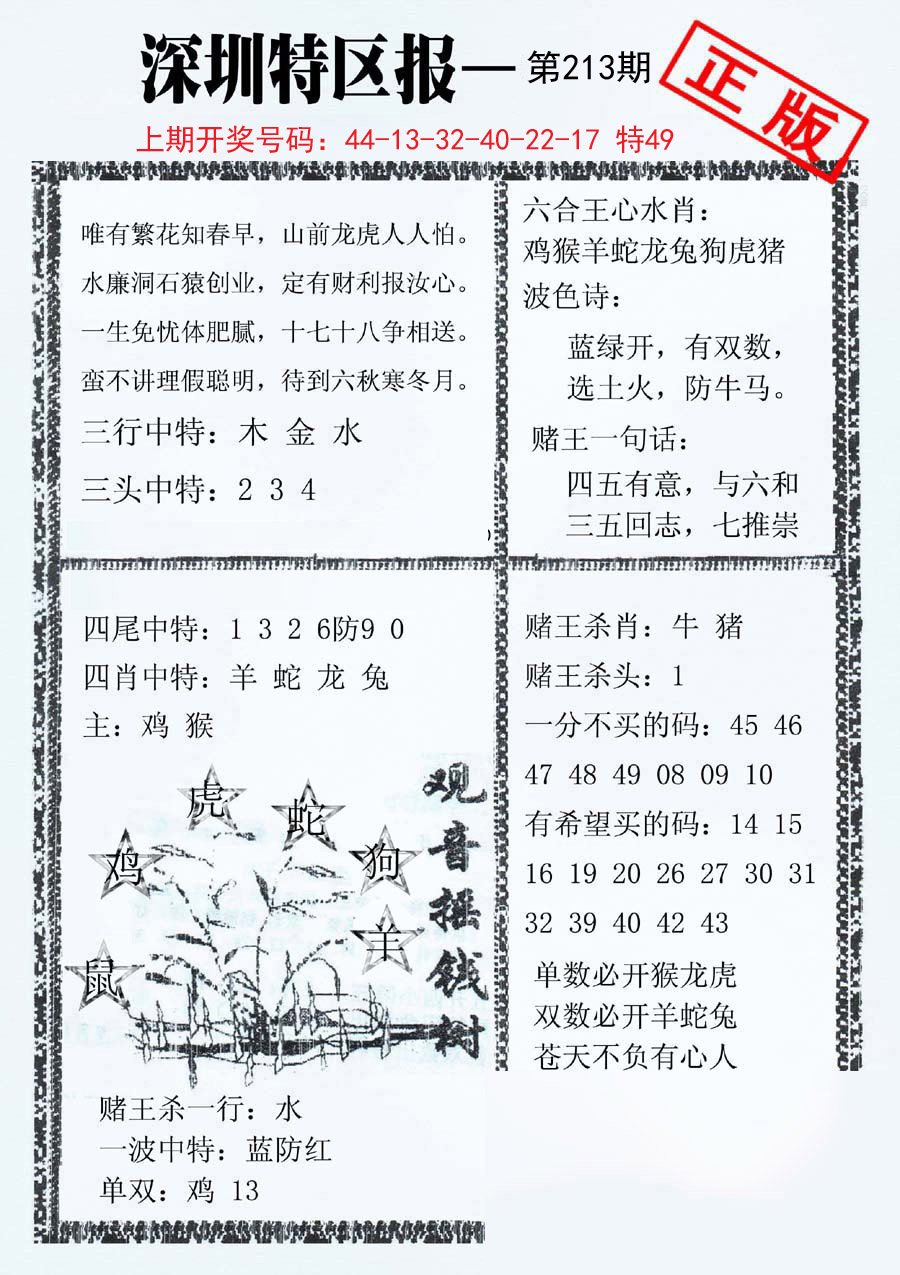 深圳特区报—第213期
正版
上期开奖号码：44-13-32-40-22-17 特49
唯有繁花知春早，山前龙虎人人怕。
水廉洞石猿创业，定有财利报汝心。
一生免忧体肥腻，十七十八争相送。
蛮不讲理假聪明，待到六秋寒冬月。
三行中特：木 金 水
三头中特：2 3 4
六合王心水肖：
鸡猴羊蛇龙兔狗虎猪
波色诗：
蓝绿开，有双数，
选土火，防牛马。
赌王一句话：
四五有意，与六和
三五回志，七推崇
四尾中特：1 3 2 6防9 0
四肖中特：羊 蛇 龙 兔
主：鸡 猴
虎
蛇
鸡
狗
羊
鼠
观音摇钱树
赌王杀一行：水
一波中特：蓝防红
单双：鸡 13
赌王杀肖：牛 猪
赌王杀头：1
一分不买的码：45 46
47 48 49 08 09 10
有希望买的码：14 15
16 19 20 26 27 30 31
32 39 40 42 43
单数必开猴龙虎
双数必开羊蛇兔
苍天不负有心人